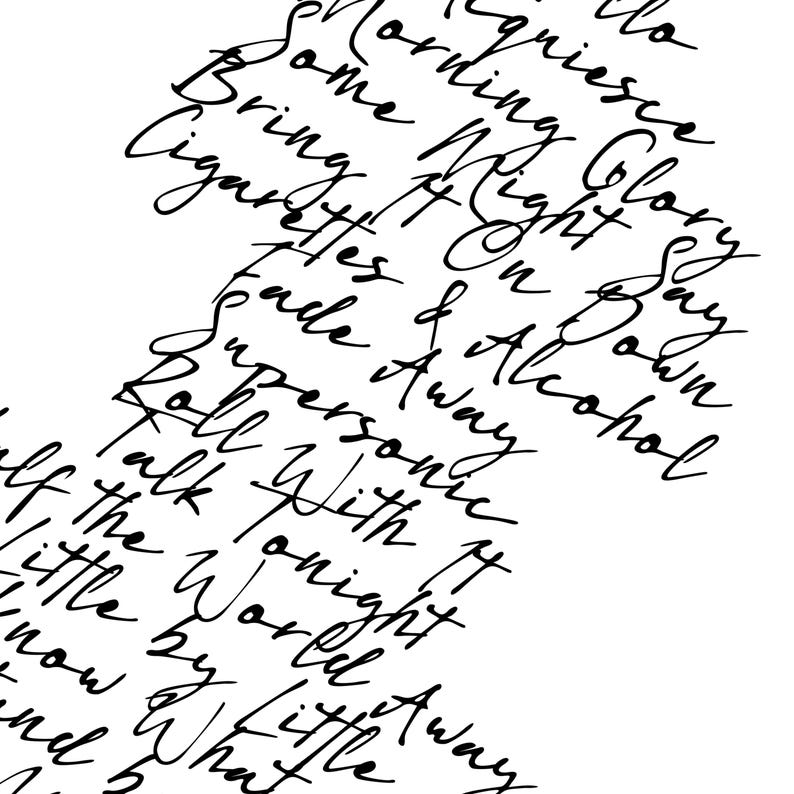 quiesce
Morning Glory
Some Might Say
Bring It On Down
Cigarettes & Alcohol
Fade Away
Supersonic
Roll With It
Talk Tonight
alf the World Away
Little by Little
Know What
and by